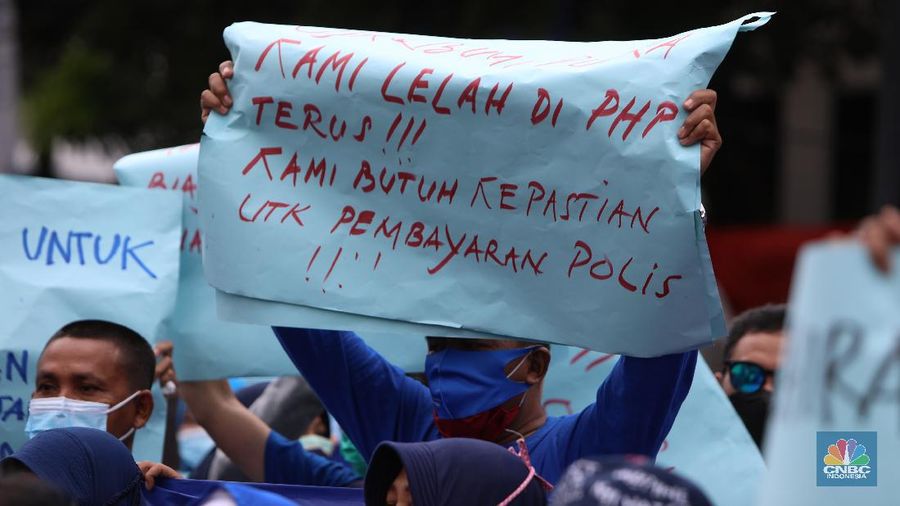 KAMI LELAH DI PHP
TERUS!!!
KAMI BUTUH KEPASTIAN
UTK PEMBAYARAN POLIS
!!!
UNTUK
CNBC
INDONESIA